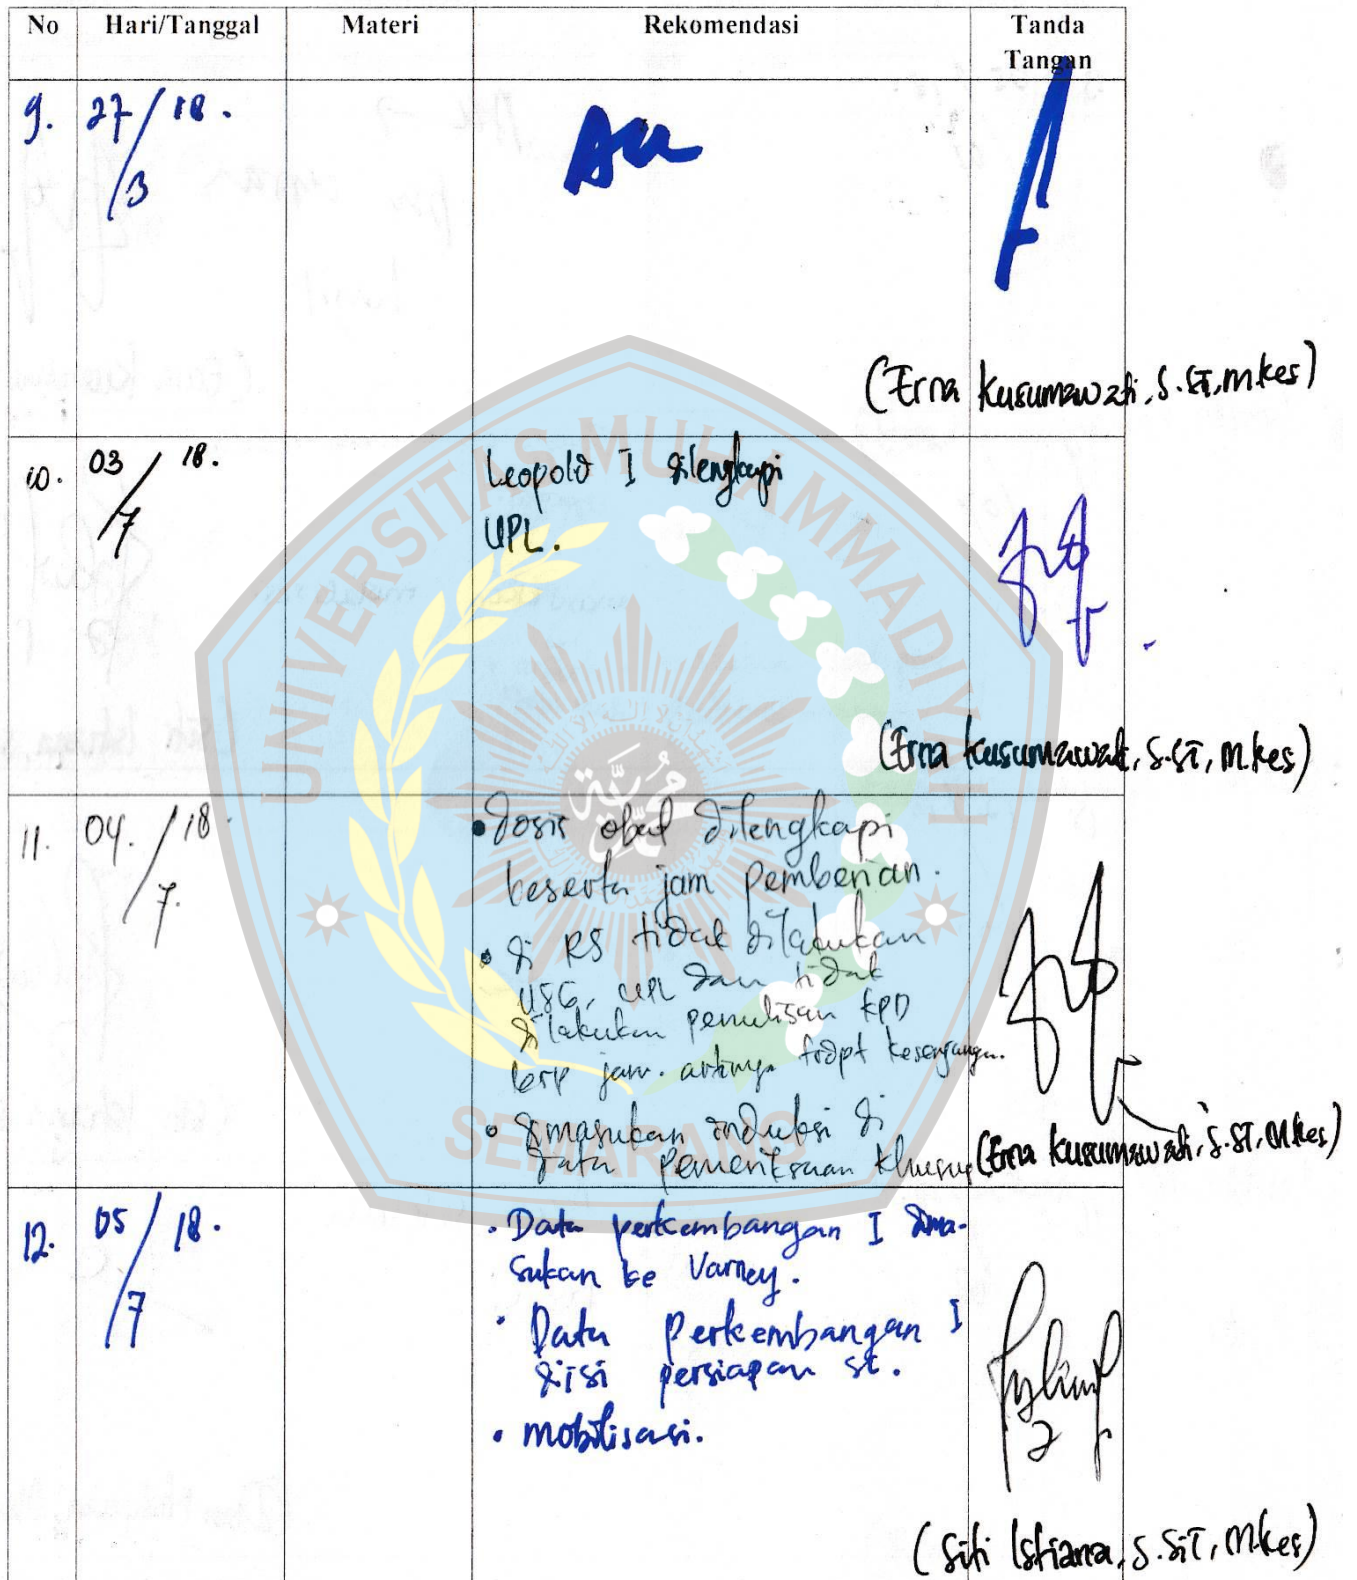 No Hari/Tanggal Materi Rekomendasi Tanda Tangan
9. 27/3 18. Acc
(Erna Kusumawati, S.ST, M.Kes)
10. 03/7 18. Leopold I dilengkapi
UPL.
(Erna Kusumawati, S.ST, M.Kes)
11. 04./7. 18. • Dosis obat dilengkapi
beserta jam pemberian.
• di RS tidak dilakukan
USG, UPL dan tidak
dilakukan penulisan KPD
brp jam. artinya trdpt kesenjangan.
• dimasukan induksi di
data pemeriksaan khusus
(Erna Kusumawati, S.ST, M.Kes)
12. 05/7 18. • Data perkembangan I dima-
sukan ke Varney.
• Data Perkembangan I
diisi persiapan st.
• mobilisasi.
(Siti Istiana, S.SiT, M.Kes)
UNIVERSITAS MUHAMMADIYAH
SEMARANG